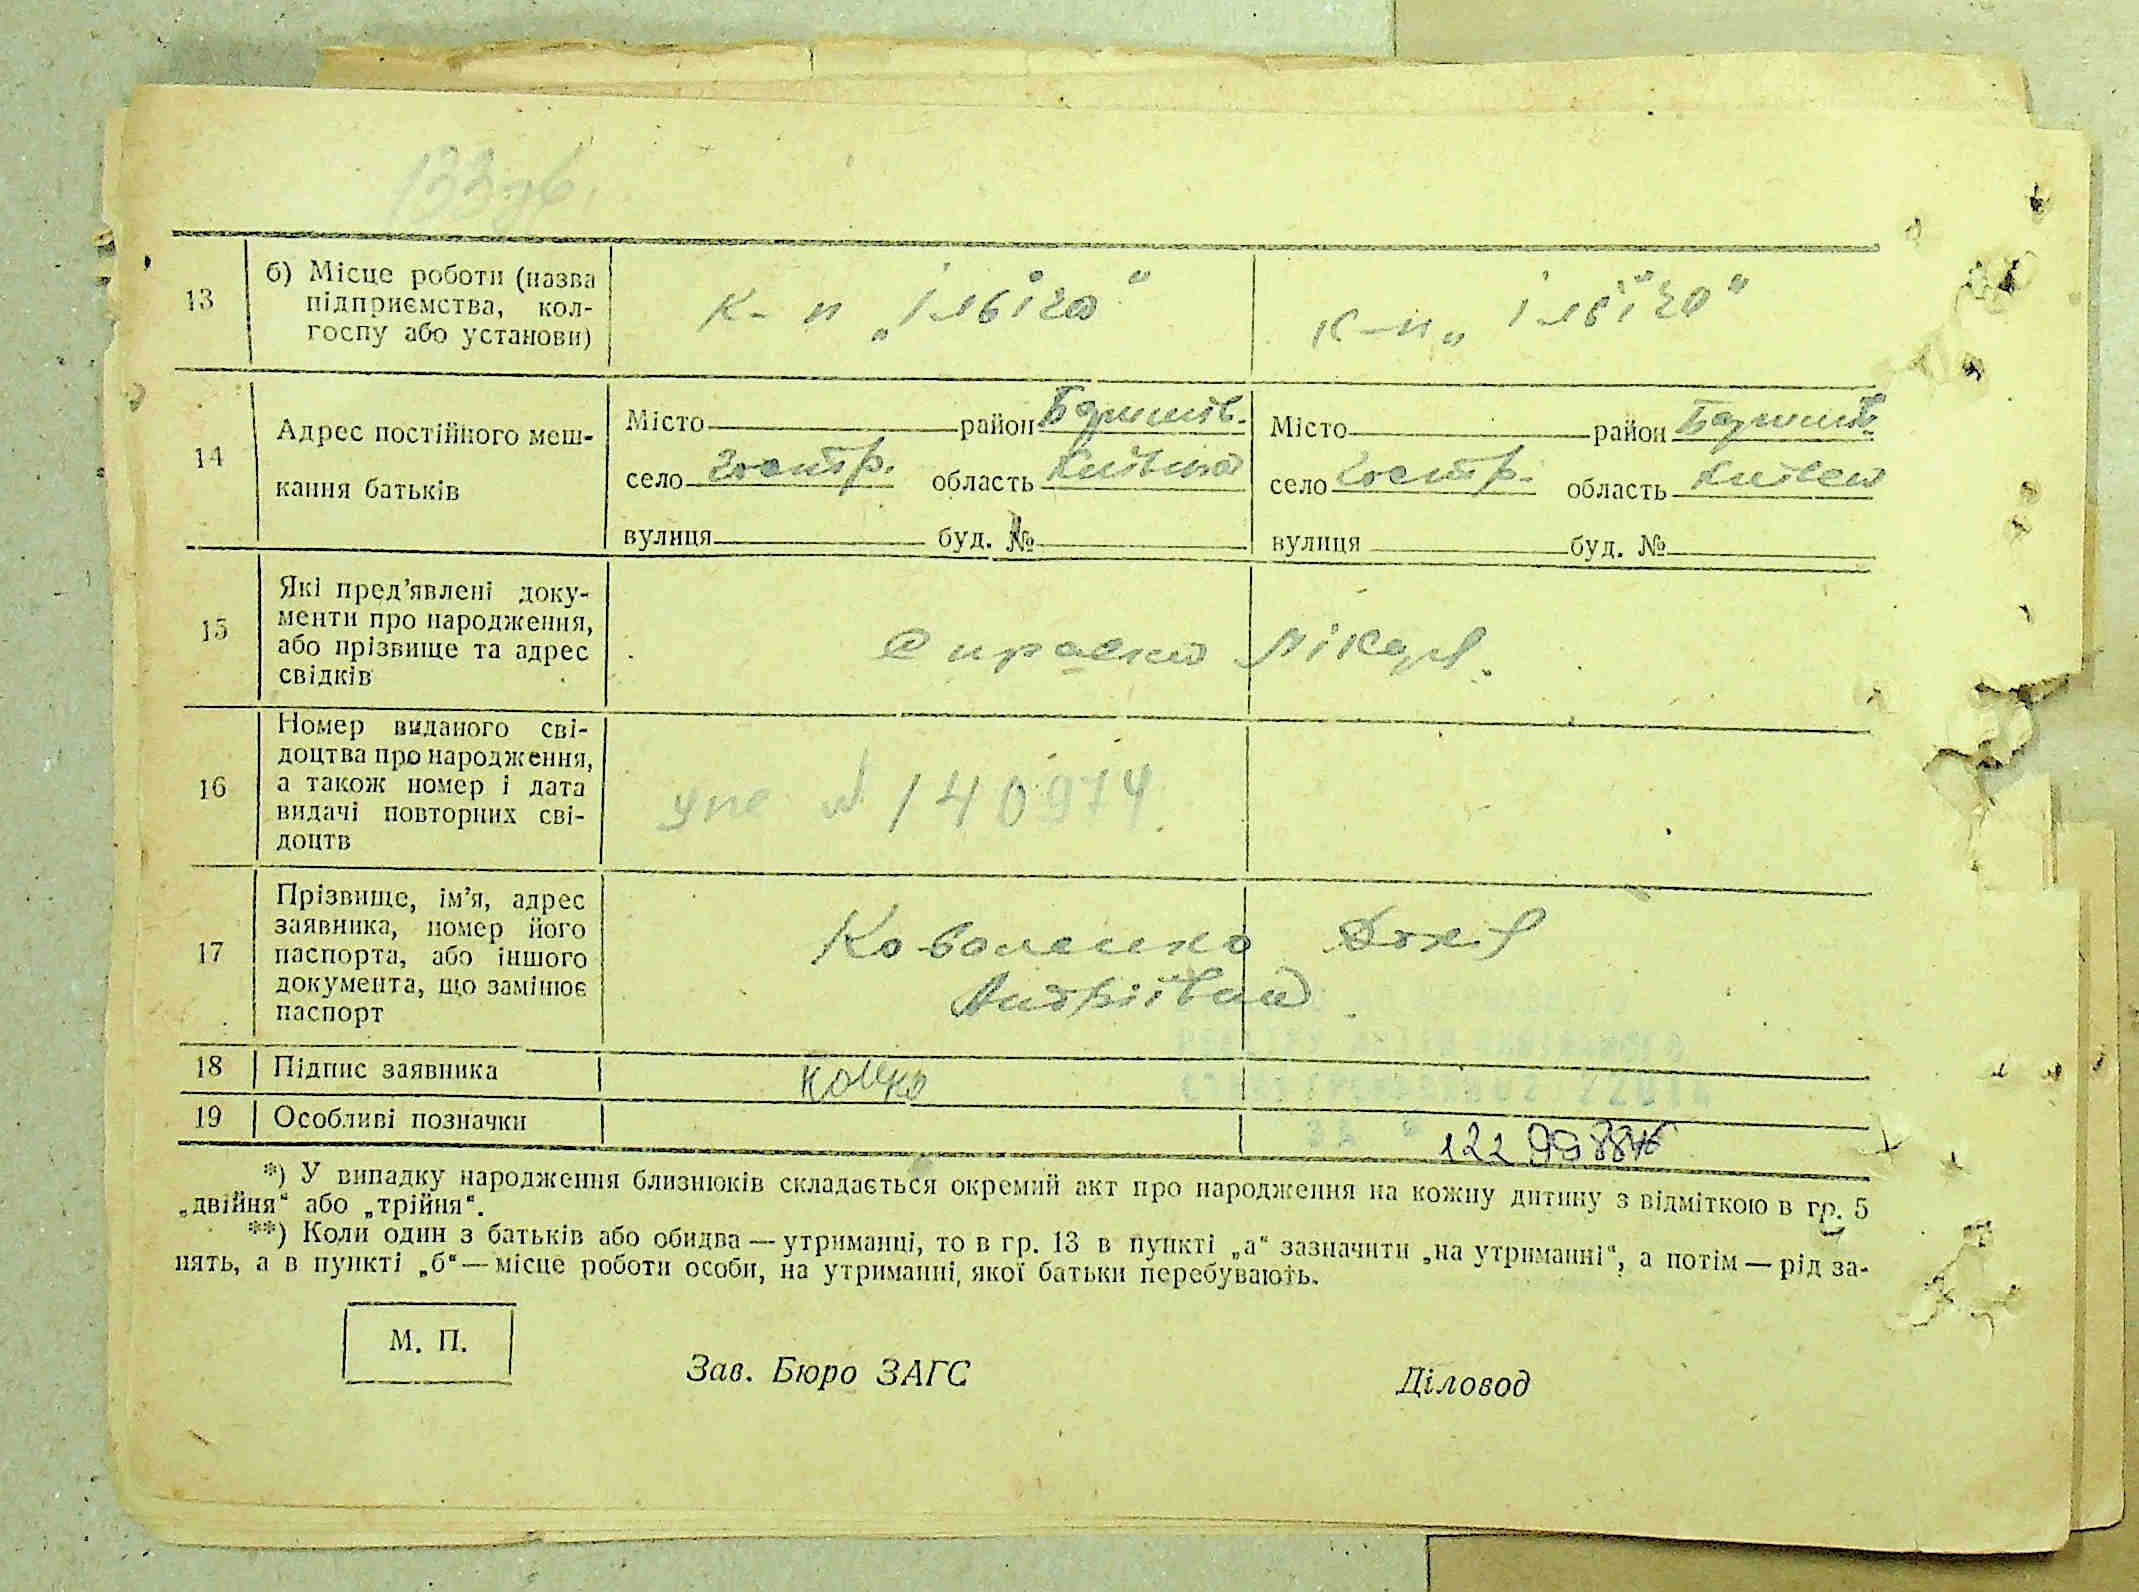 133зв.
13
б) Місце роботи (назва
підприємства, кол-
госпу або установи)
к-п „Ілліча“
к-п „Ілліча“
14
Адрес постійного меш-
кання батьків
Місто район Баришів.
село Гостр. область Київська
вулиця буд. №
Місто район Баришів
село Гостр. область Київськ
вулиця буд. №
15
Які пред’явлені доку-
менти про народження,
або прізвище та адрес
свідків
Справка лікаря.
16
Номер виданого сві-
доцтва про народження,
а також номер і дата
видачі повторних сві-
доцтв
№ 140974
17
Прізвище, ім’я, адрес
заявника, номер його
паспорта, або іншого
документа, що замінює
паспорт
Коваленко
Андріївна
18
Підпис заявника
19
Особливі позначки
*) У випадку народження близнюків складається окремий акт про народження на кожну дитину з відміткою в гр. 5
„двійня“ або „трійня“.
**) Коли один з батьків або обидва — утриманці, то в гр. 13 в пункті „а“ зазначити „на утриманні“, а потім — рід за-
нять, а в пункті „б“ — місце роботи особи, на утриманні, якої батьки перебувають.
М. П.
Зав. Бюро ЗАГС
Діловод